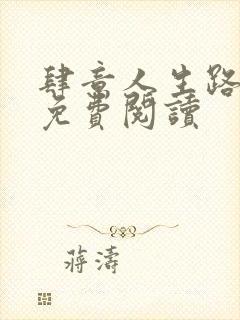 肆意人生路
免費閱讀
蔣濤